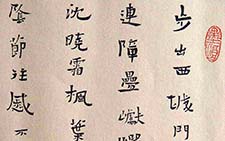 步出西城門
連障疊巘崿
沈曉霜楓葉
陰節往慼不